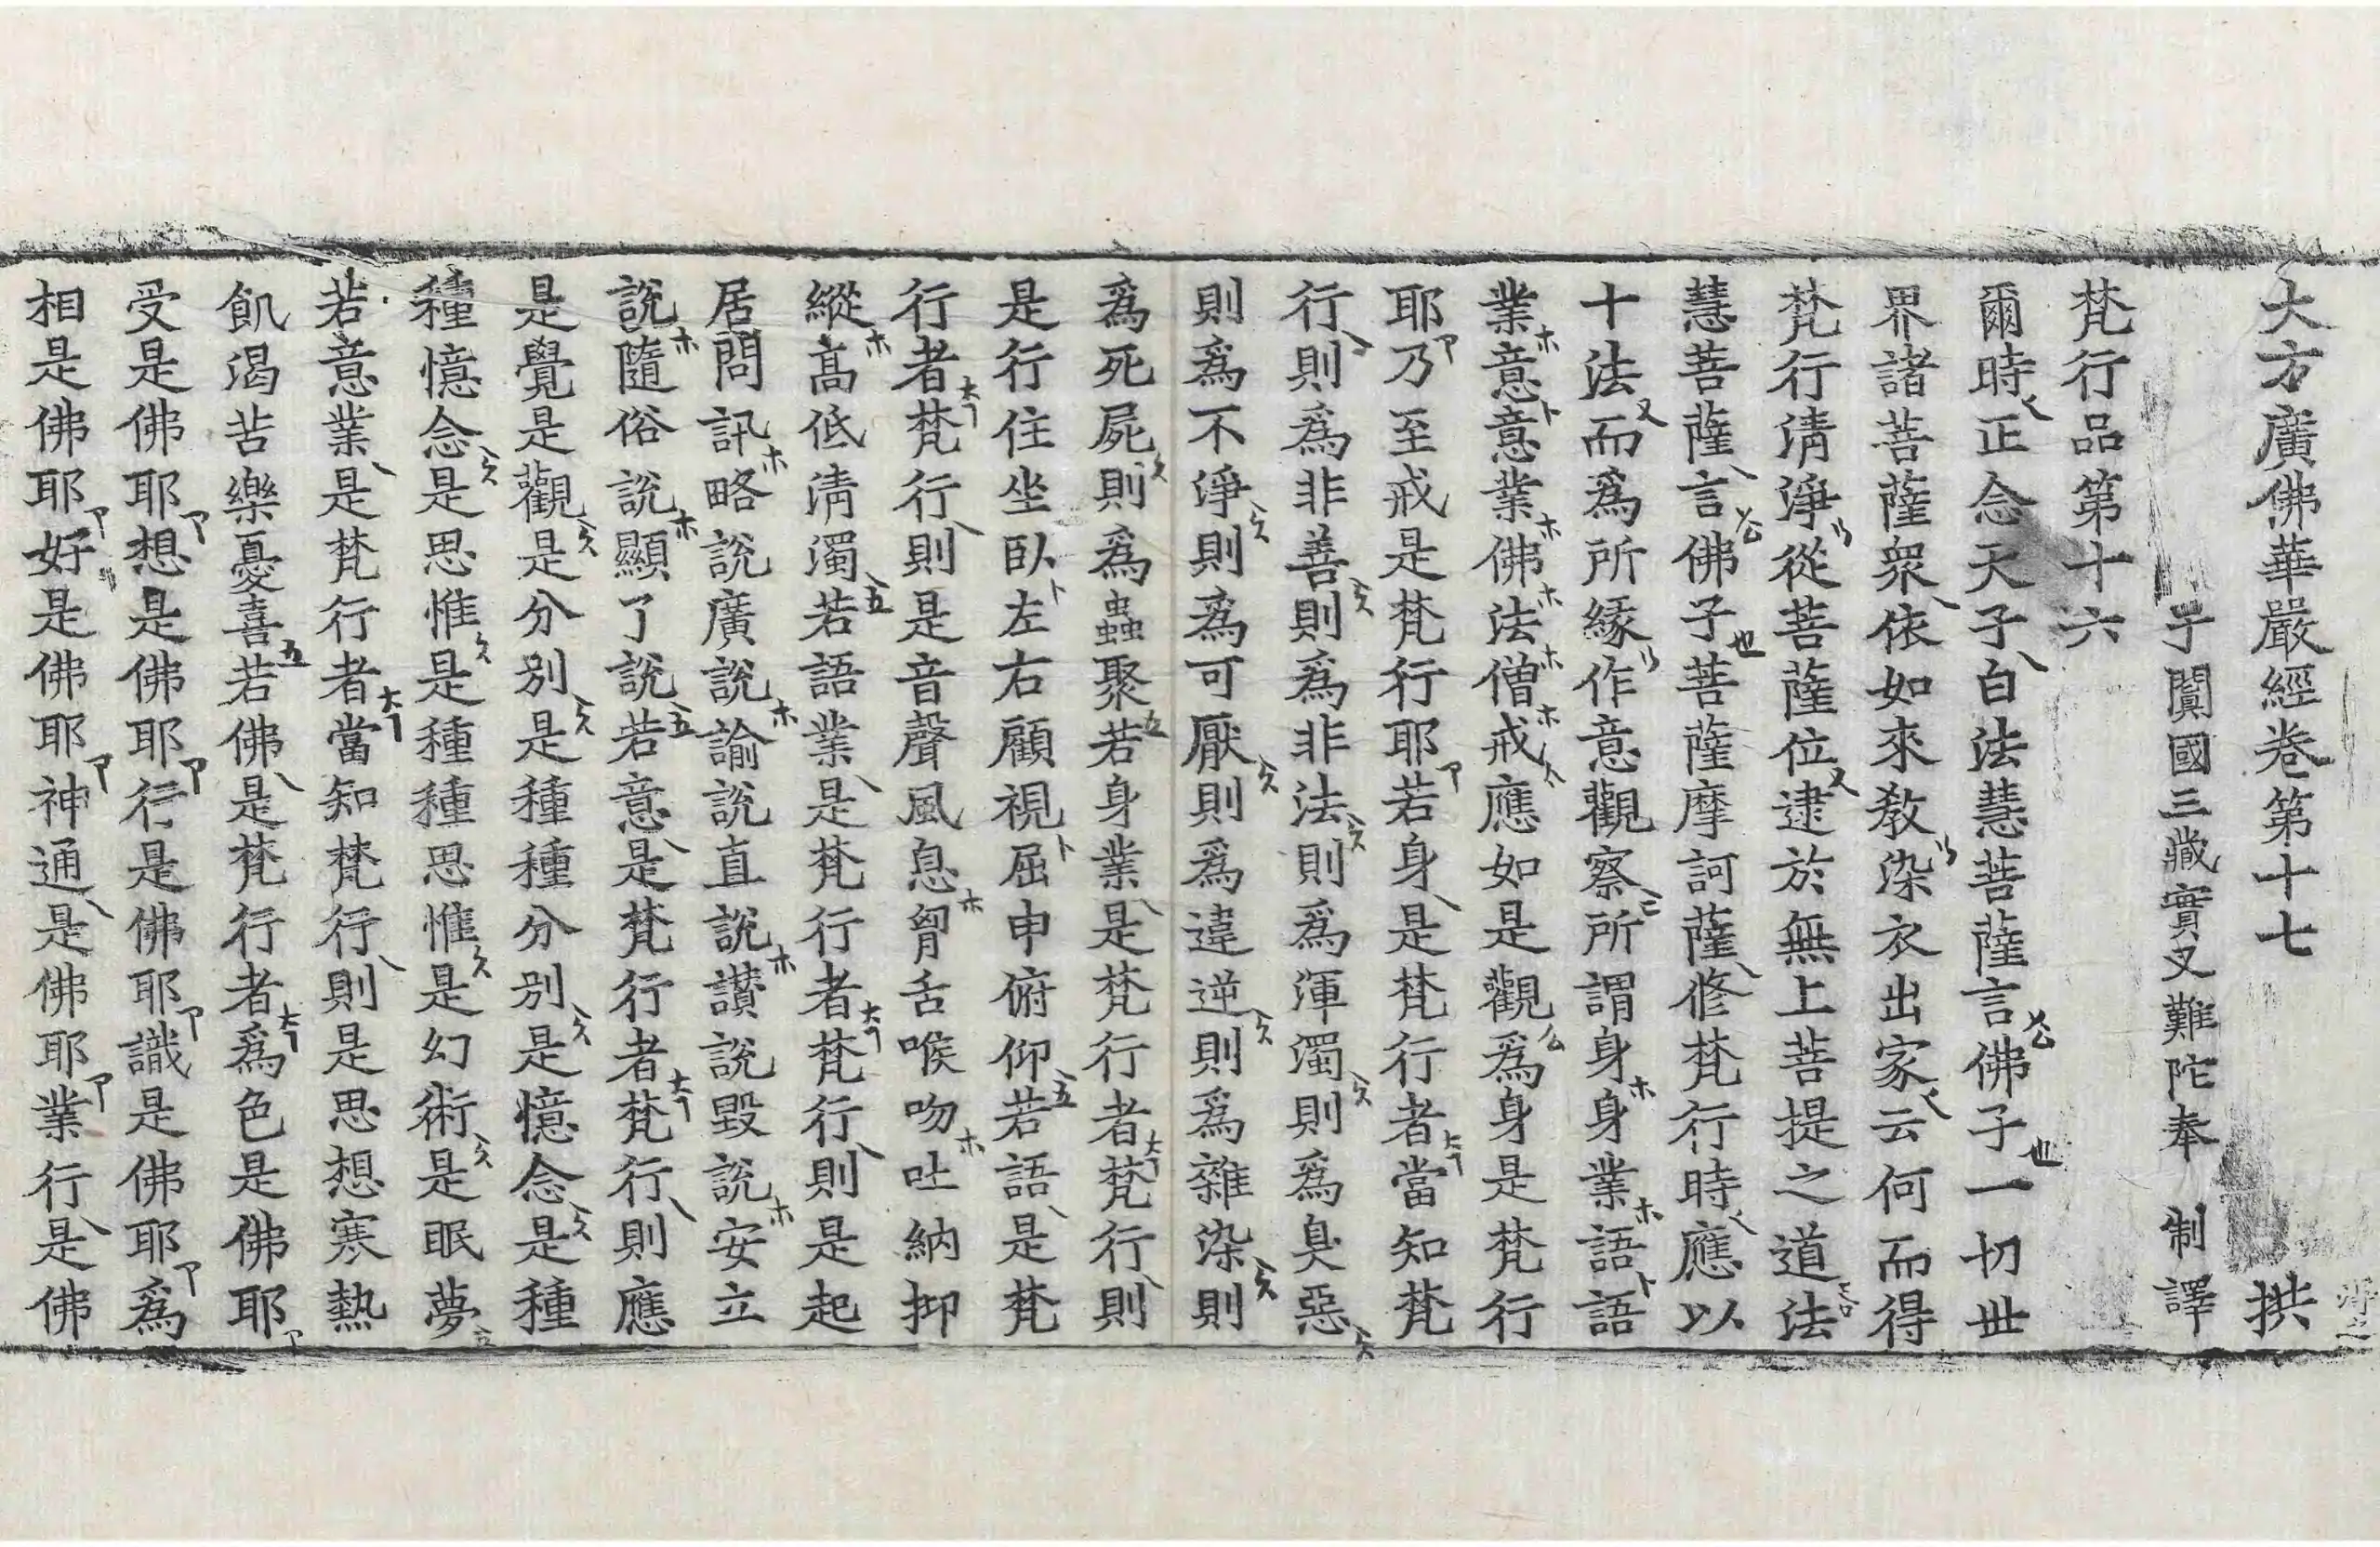 大方廣佛華嚴經卷第十七 拱
于闐國三藏實叉難陀奉 制譯
梵行品第十六
爾時正念天子白法慧菩薩言佛子一切世
界諸菩薩衆依如來教染衣出家云何而得
梵行清淨從菩薩位逮於無上菩提之道法
慧菩薩言佛子菩薩摩訶薩修梵行時應以
十法而爲所緣作意觀察所謂身身業語語
業意意業佛法僧戒應如是觀爲身是梵行
耶乃至戒是梵行耶若身是梵行者當知梵
行則爲非善則爲非法則爲渾濁則爲臭惡
則爲不淨則爲可厭則爲違逆則爲雜染則
爲死屍則爲蟲聚若身業是梵行者梵行則
是行住坐臥左右顧視屈申俯仰若語是梵
行者梵行則是音聲風息胷舌喉吻吐納抑
縱高低清濁若語業是梵行者梵行則是起
居問訊略說廣說諭說直說讚說毀說安立
說隨俗說顯了說若意是梵行者梵行則應
是覺是觀是分別是種種分別是憶念是種
種憶念是思惟是種種思惟是幻術是眠夢
若意業是梵行者當知梵行則是思想寒熱
飢渴苦樂憂喜若佛是梵行者爲色是佛耶
受是佛耶想是佛耶行是佛耶識是佛耶爲
相是佛耶好是佛耶神通是佛耶業行是佛